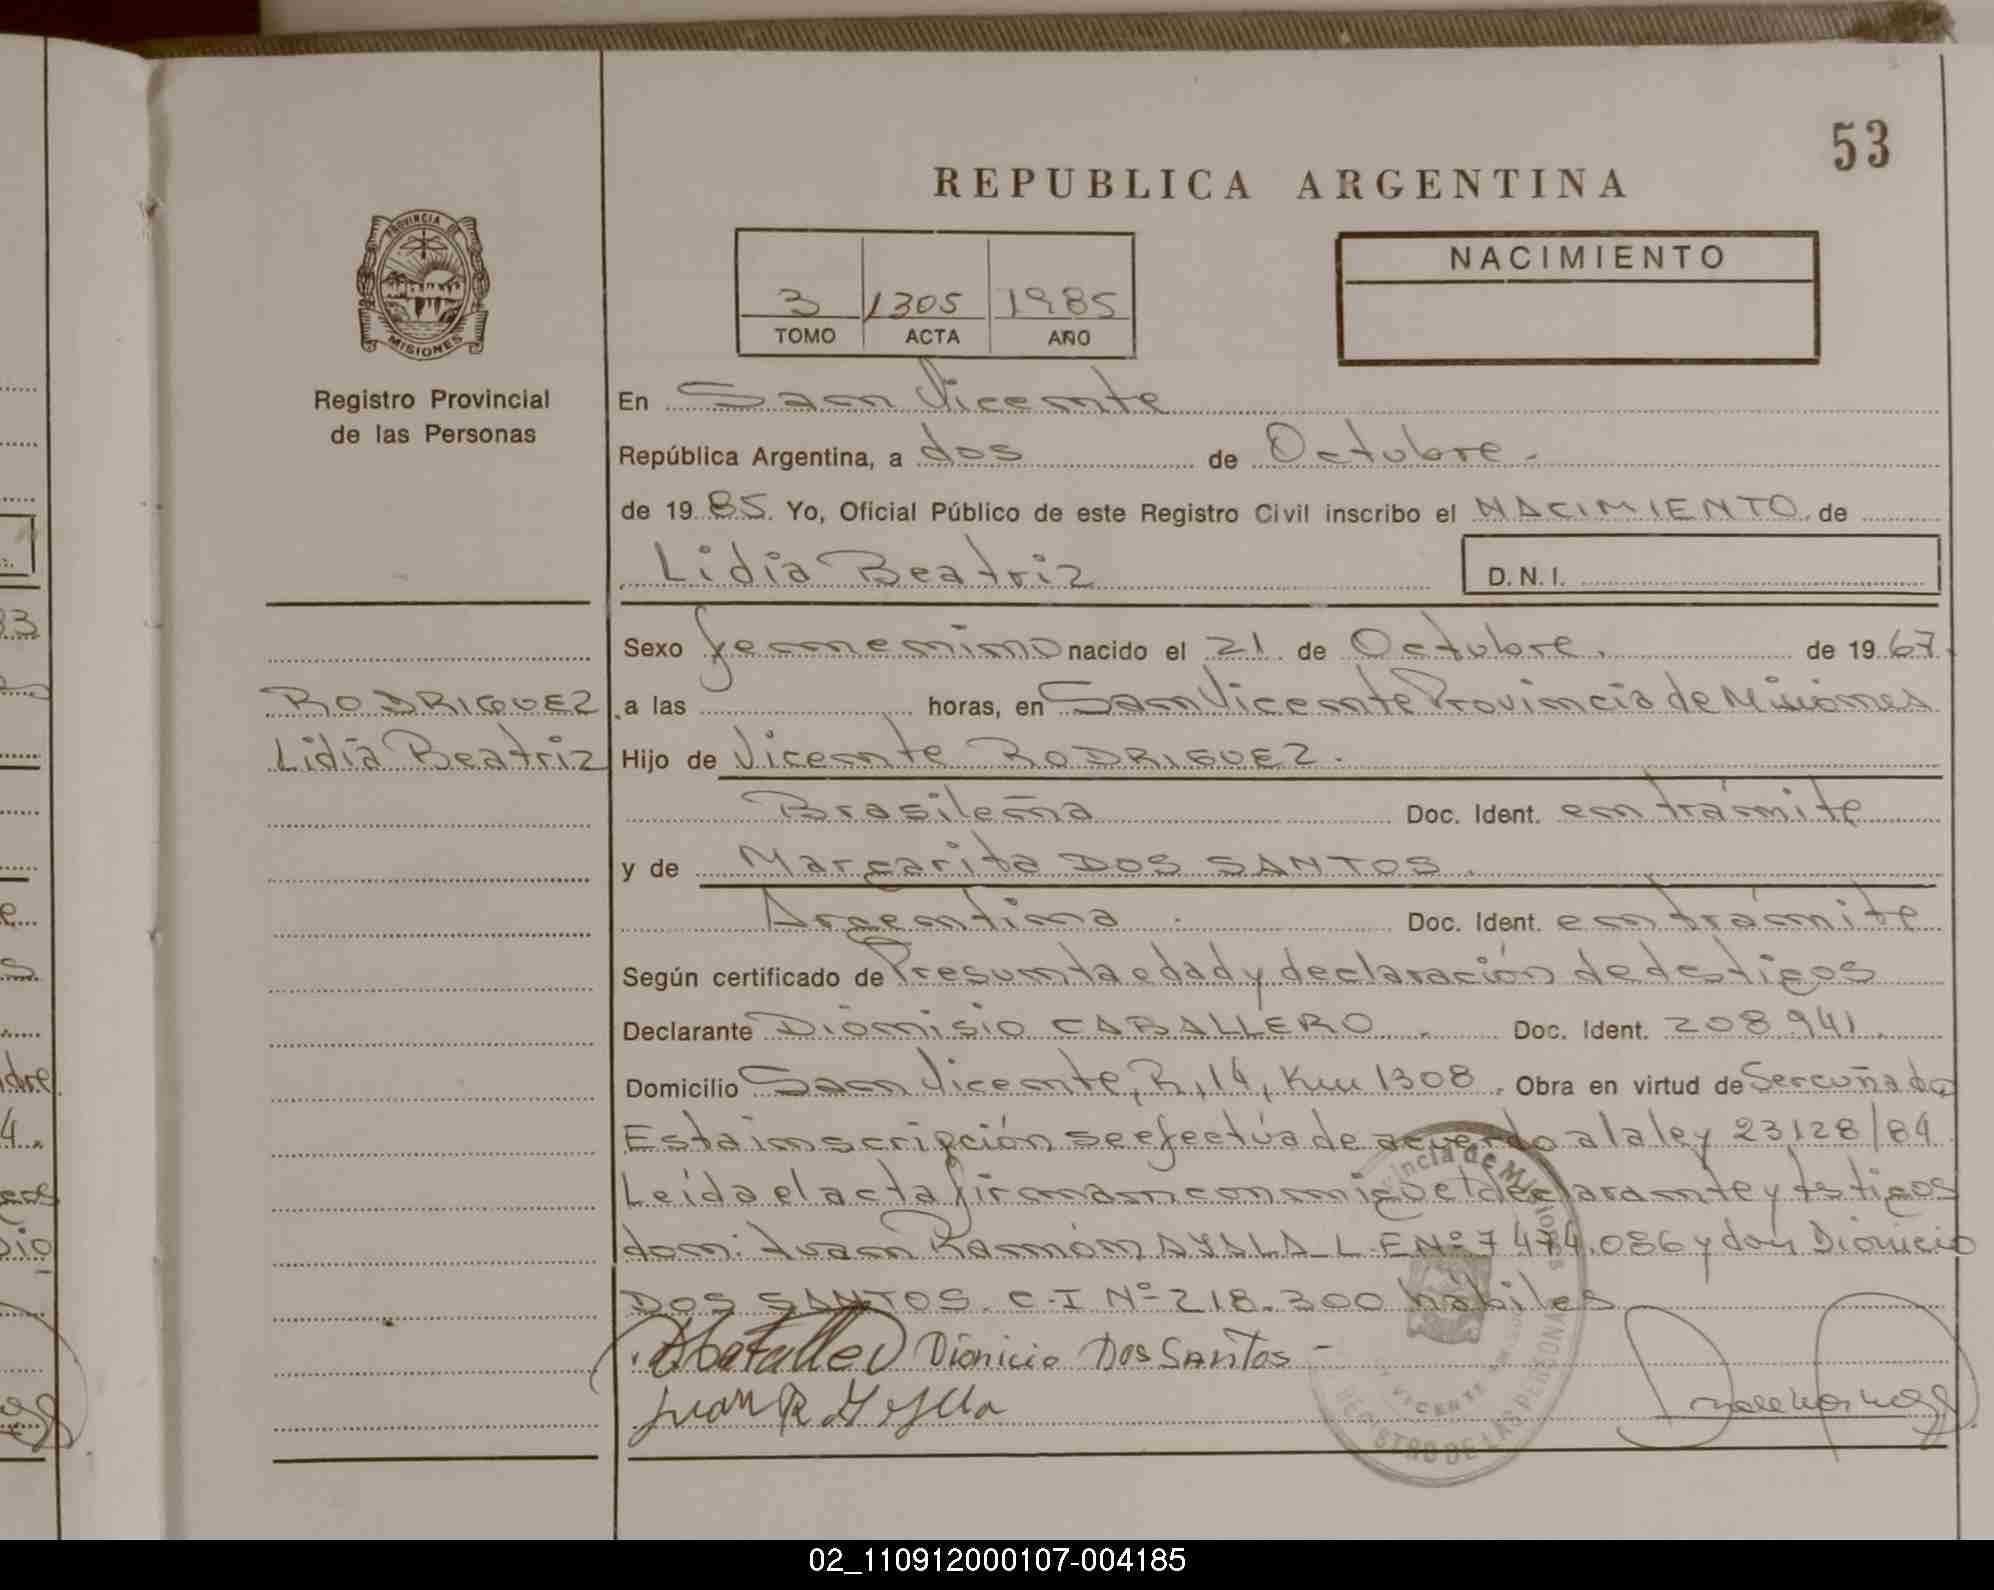 53
REPUBLICA ARGENTINA
PROVINCIA DE
MISIONES
Registro Provincial
de las Personas
3 1305 1985
TOMO ACTA AÑO
NACIMIENTO
En San Vicente
República Argentina, a dos de Octubre.
de 19 85. Yo, Oficial Público de este Registro Civil inscribo el NACIMIENTO de
Lidia Beatriz
D. N. I.
Sexo femenino nacido el 21 de Octubre. de 19 67.
RODRIGUEZ
a las horas, en San Vicente Provincia de Misiones
Lidia Beatriz
Hijo de Vicente RODRIGUEZ.
Brasileña Doc. Ident. en trámite
y de Margarita DOS SANTOS.
Argentina. Doc. Ident. en trámite
Según certificado de Presunta edad y declaración de testigos
Declarante Dionisio CABALLERO. Doc. Ident. 208941.
Domicilio San Vicente, R, 14, Km 1308. Obra en virtud de Ser cuñado
Esta inscripción se efectúa de acuerdo a la ley 23128/84
Leída el acta firman conmigo el declarante y testigos
don: Juan Ramón AYALA L.E Nº 7474.086 y don Dionicio
DOS SANTOS. C.I Nº 218.300 hábiles
Dionicio Dos Santos -
Juan R. Ayala
incia de Misiones
VICENTE
REGISTRO DE LAS PERSONAS
02_110912000107-004185